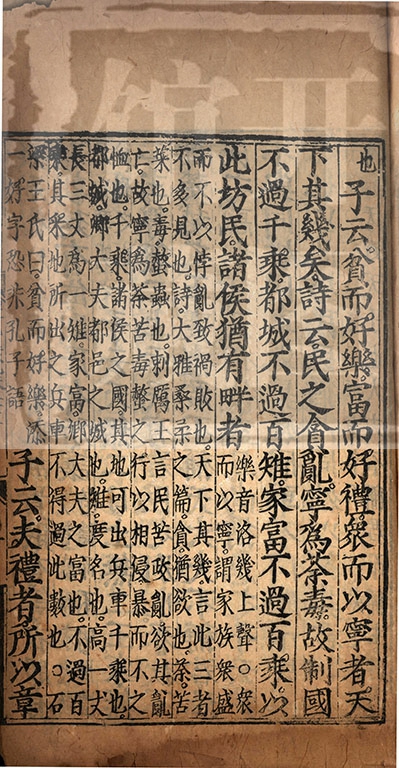 也 子云貧而好樂富而好禮衆而以寧者天
下其幾矣詩云民之貪亂寧為荼毒故制國
不過千乘都城不過百雉家富不過百乘以
此坊民諸侯猶有畔者
樂音洛幾上聲○衆
而以寧謂家族衆盛
而不以悖亂致禍敗也天下其幾言此三者
不多見也詩大雅桑柔之篇貪猶欲也荼苦
菜也毒螫蟲也刺厲王言民苦政亂欲其亂
亡故寧為荼苦毒螫之行以相侵暴而不之
恤也千乘諸侯之國其地可出兵車千乘也
都城卿大夫都邑之城也雉度名也高一丈
長三丈為一雉家富卿大夫之富也不過百
乘其采地所出之兵車不得過此數也○石
梁王氏曰貧而好樂添
一好字恐非孔子語
子云夫禮者所以章